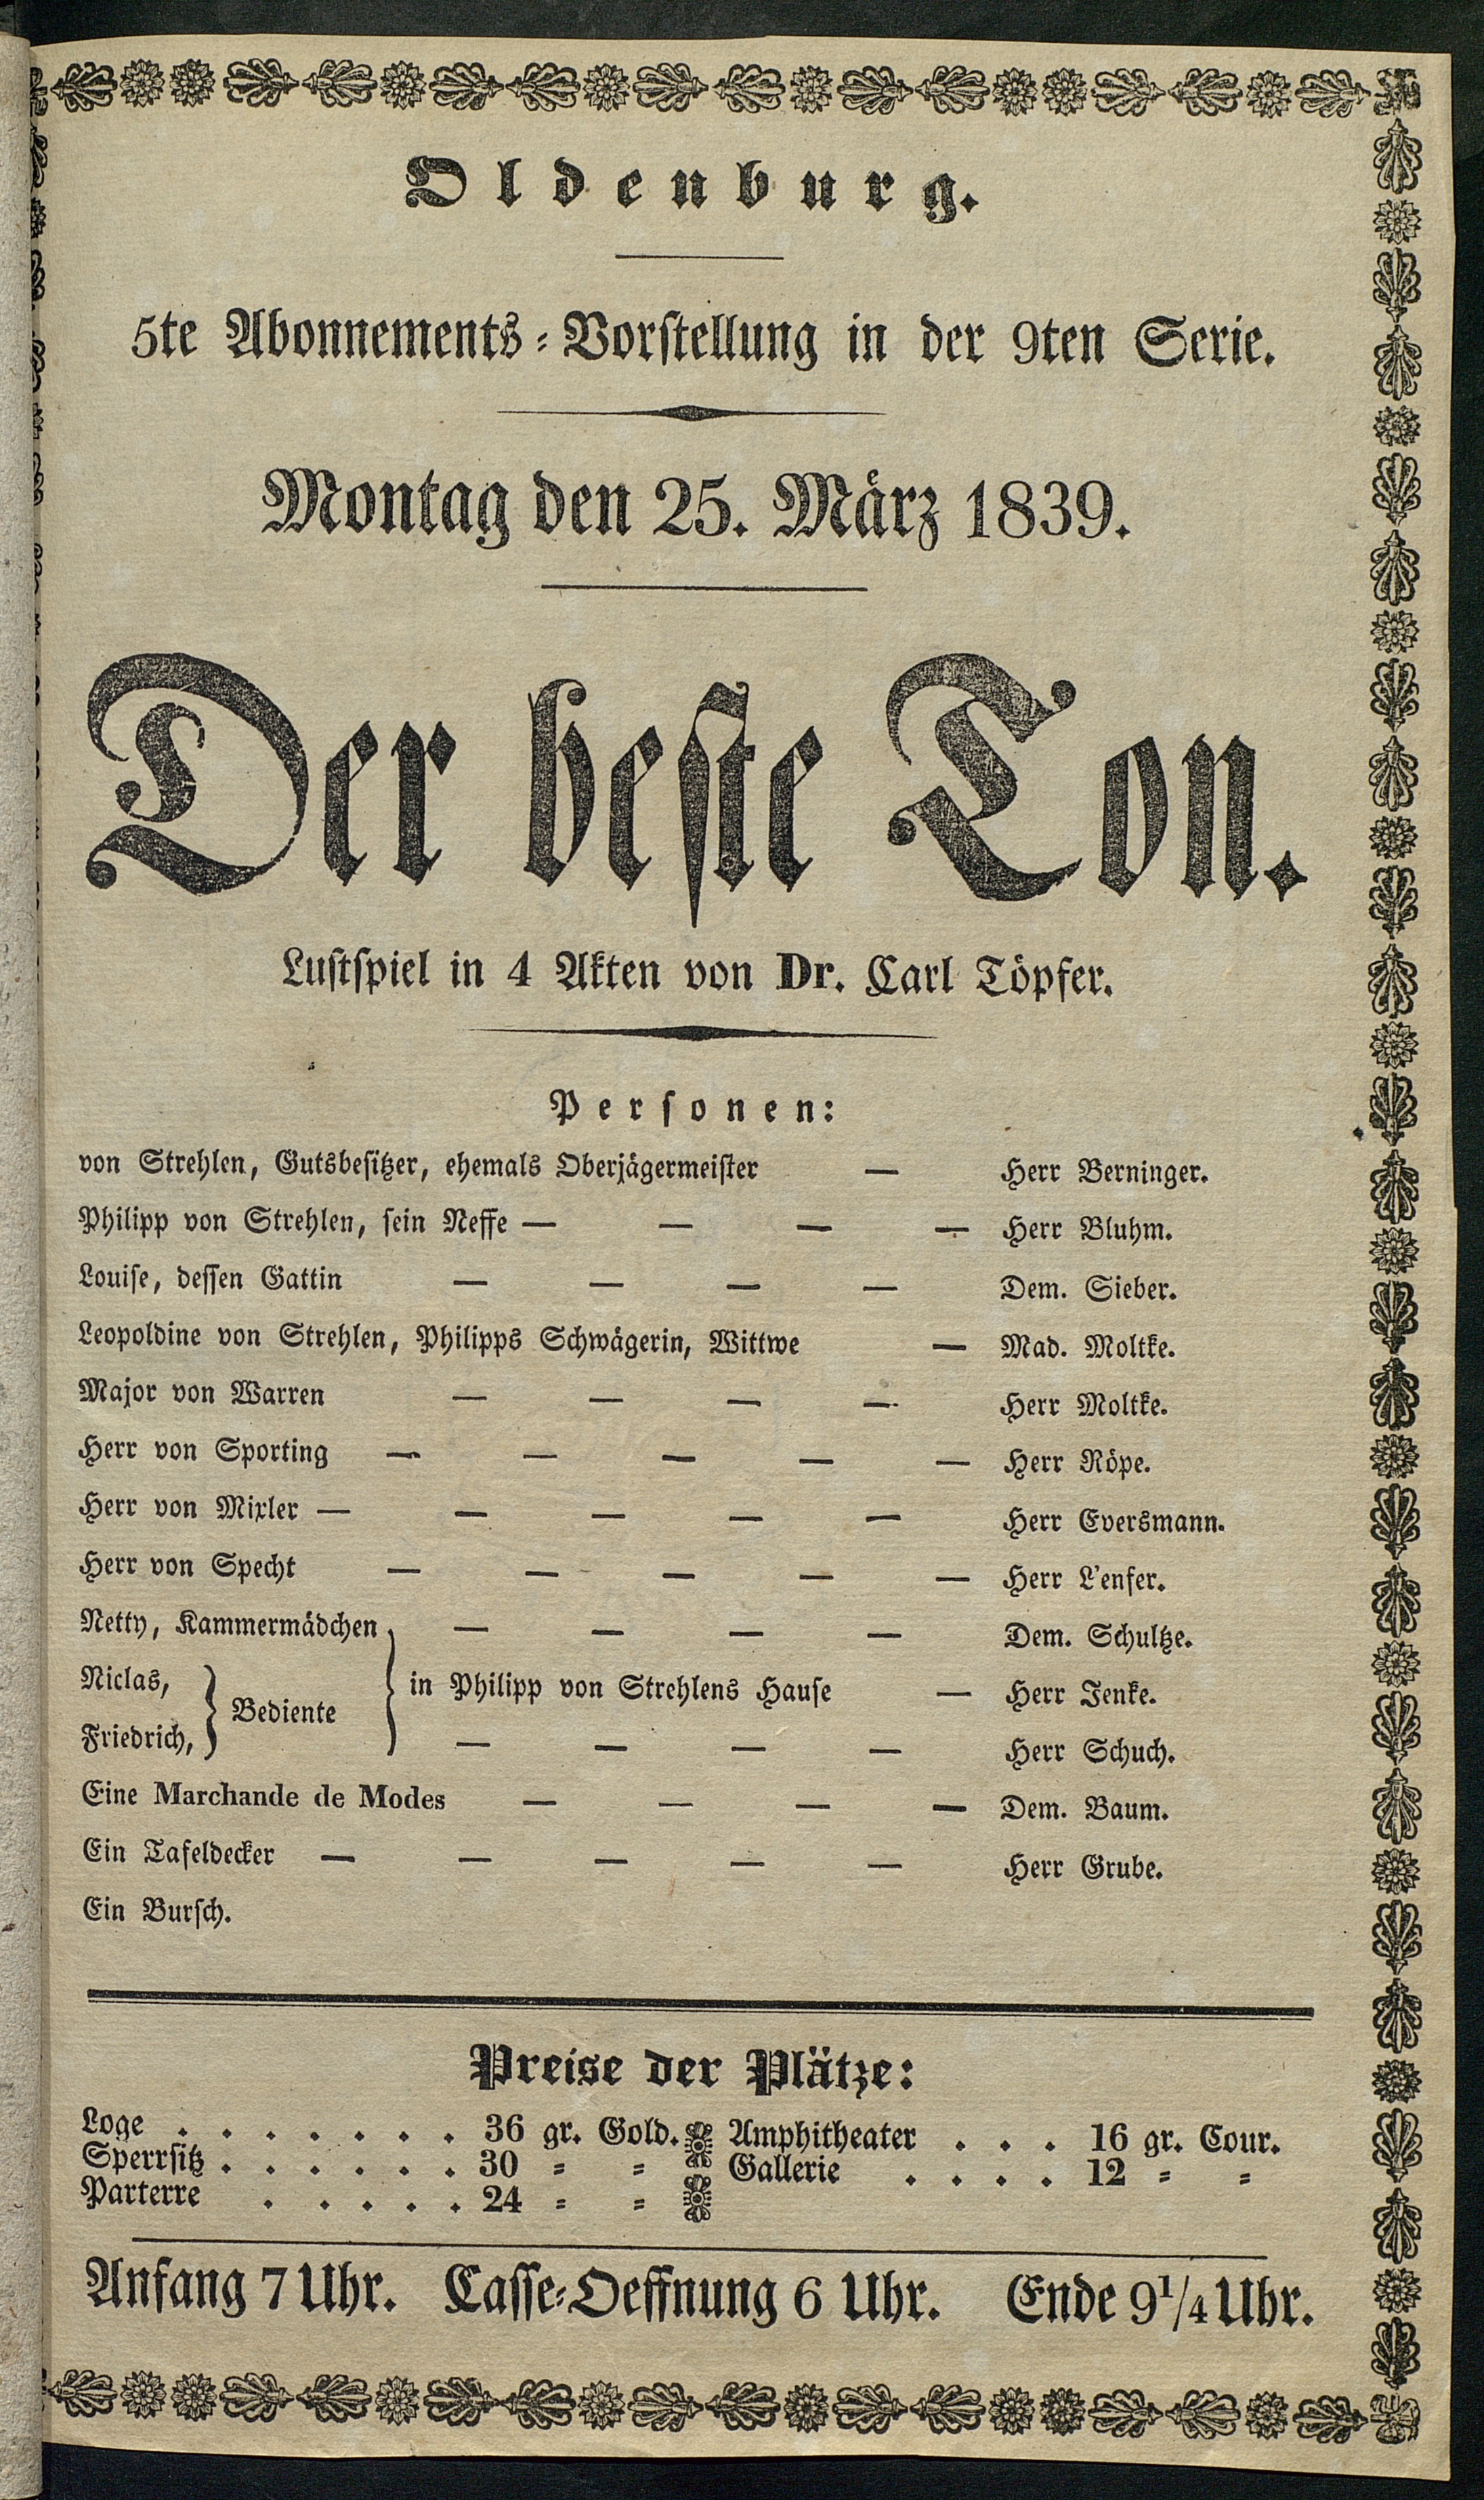 Oldenburg.
5te Abonnements-Vorstellung in der 9ten Serie.
Montag den 25. März 1839.
Der beste Ton.
Lustspiel in 4 Akten von Dr. Carl Töpfer.
Personen:
von Strehlen, Gutsbesitzer, ehemals Oberjägermeister — Herr Berninger.
Philipp von Strehlen, sein Neffe — — — — Herr Bluhm.
Louise, dessen Gattin — — — — Dem. Sieber.
Leopoldine von Strehlen, Philipps Schwägerin, Wittwe — Mad. Moltke.
Major von Warren — — — — Herr Moltke.
Herr von Sporting — — — — — Herr Röpe.
Herr von Mixler — — — — — Herr Eversmann.
Herr von Specht — — — — — Herr L'enfer.
Netty, Kammermädchen — — — — Dem. Schultze.
Niclas, } Bediente } in Philipp von Strehlens Hause — Herr Jenke.
Friedrich, — — — — Herr Schuch.
Eine Marchande de Modes — — — — Dem. Baum.
Ein Tafeldecker — — — — — Herr Grube.
Ein Bursch.
Preise der Plätze:
Loge . . . . . . . 36 gr. Gold. Amphitheater . . . 16 gr. Cour.
Sperrsitz . . . . . . 30 = = Gallerie . . . . 12 = =
Parterre . . . . . 24 = =
Anfang 7 Uhr. Casse-Oeffnung 6 Uhr. Ende 9 1/4 Uhr.